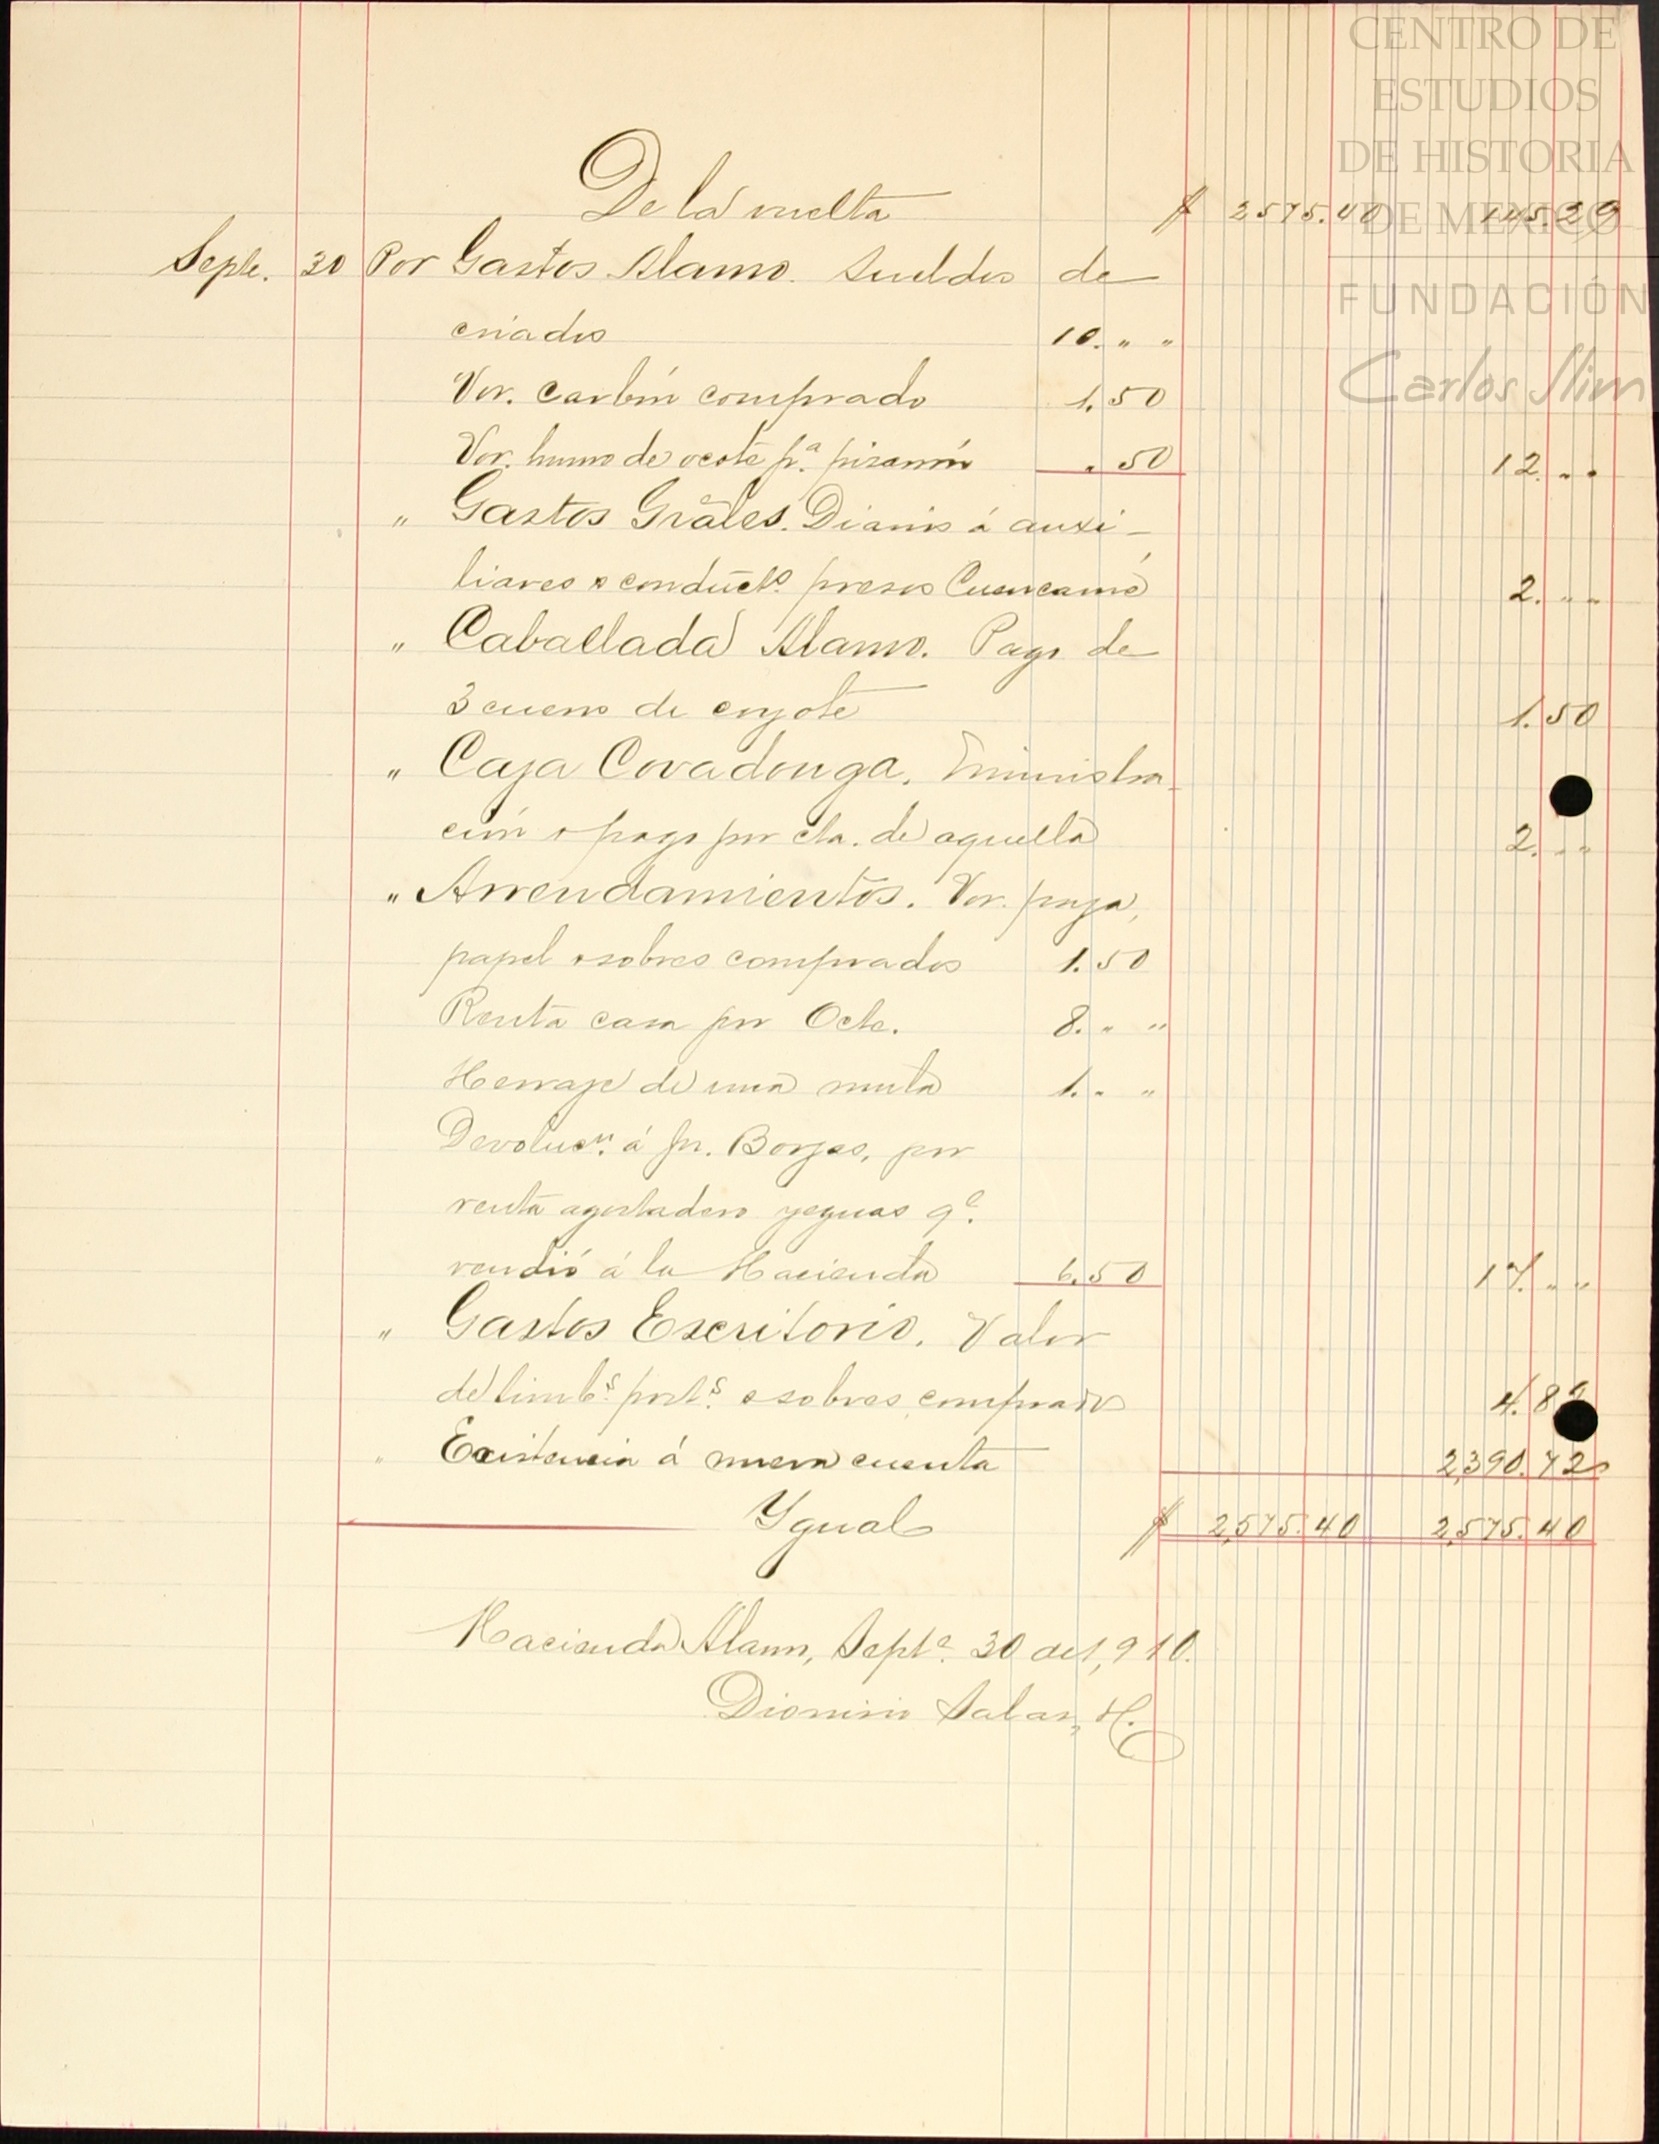 CENTRO DE
ESTUDIOS
DE HISTORIA
DE MEXICO
FUNDACIÓN
Carlos Slim
De la vuelta $ 2575.40 145.29
Septe. 30 Por Gastos Alamo. Sueldos de
criados 10. " "
Vor. carbón comprado 1.50
Vor. humo de ocote p.a pizarrón . 50 12. " "
" Gastos Grāles. Diarios á auxi-
liares conduct.s presos Cuencamé 2. " "
" Caballada Alamo. Pago de
3 cueros de coyote 1.50
" Caja Covadonga. Suministra-
ción pago por cta. de aquella 2. " "
" Arrendamientos. Vor. paja,
papel sobres comprados 1.50
Renta casa por Octe. 8. " "
Herraje de una mula 1. " "
Devoluc.n á Borjas, por
renta agostadero yeguas q.e
vendió á la Hacienda 6.50 17. " "
" Gastos Escritorio. Valor
de timb.s post.s sobres comprados 4.89
" Existencia á nueva cuenta 2,390.72
Ygual $ 2,575.40 2,575.40
Hacienda Alamo, Sept.e 30 de 1,910.
Dionisio Salas, H.